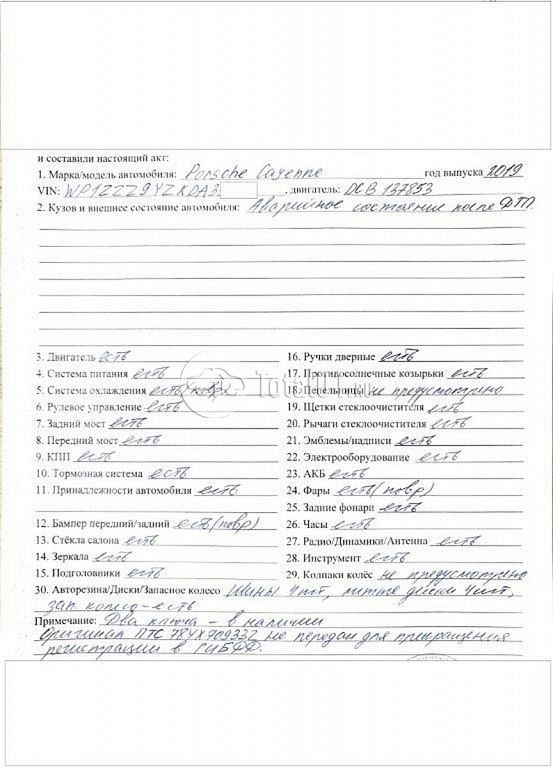 и составили настоящий акт:
1. Марка/модель автомобиля: Porsche Cayenne год выпуска 2019
VIN: WP1ZZZ9YZKDA3 , двигатель: DCB 137853
2. Кузов и внешнее состояние автомобиля: Аварийное состояние после ДТП.
3. Двигатель есть
4. Система питания есть
5. Система охлаждения есть(повр)
6. Рулевое управление есть
7. Задний мост есть
8. Передний мост есть
9. КПП есть
10. Тормозная система есть
11. Принадлежности автомобиля есть
12. Бампер передний/задний есть(повр)
13. Стёкла салона есть
14. Зеркала есть
15. Подголовники есть
16. Ручки дверные есть
17. Противосолнечные козырьки есть
18. Пепельница не предусмотрено
19. Щетки стеклоочистителя есть
20. Рычаги стеклоочистителя есть
21. Эмблемы/надписи есть
22. Электрооборудование есть
23. АКБ есть
24. Фары есть(повр)
25. Задние фонари есть
26. Часы есть
27. Радио/Динамики/Антенна есть
28. Инструмент есть
29. Колпаки колёс не предусмотрено
30. Авторезина/Диски/Запасное колесо Шины 4шт, литые диски 4шт,
зап. колесо-есть
Примечание: Два ключа - в наличии
Оригинал ПТС 78УХ709332 не передан для прекращения
регистрации в ГИБДД.
Total01.ru